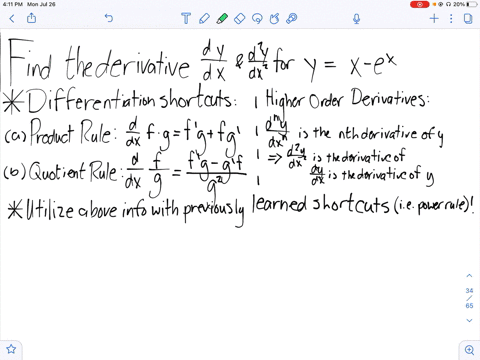 4:11 PM Mon Jul 26
20%
Find the derivative dy/dx & d²y/dx² for y = x-eˣ
*Differentiation shortcuts:
(a) Product Rule: d/dx f·g = f'g + fg'
(b) Quotient Rule: d/dx f/g = f'g - g'f / g²
Higher Order Derivatives:
dⁿy/dxⁿ is the nth derivative of y
⇒ d²y/dx² is the derivative of
dy/dx is the derivative of y
*Utilize above info with previously learned shortcuts (i.e. power rule)!
34
/
65